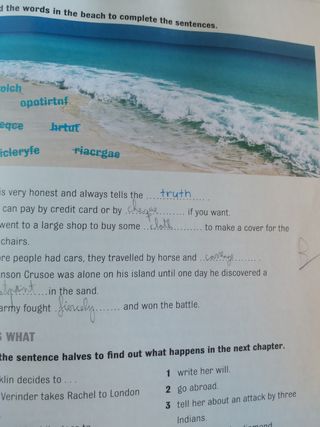 d the words in the beach to complete the sentences.
olch
opotirtnf
eqce hrtut
icleryfe riacrgae
is very honest and always tells the truth.
can pay by credit card or by cheque if you want.
went to a large shop to buy some cloth to make a cover for the
chairs.
re people had cars, they travelled by horse and
nson Crusoe was alone on his island until one day he discovered a
in the sand.
army fought fiercely and won the battle.
S WHAT
the sentence halves to find out what happens in the next chapter.
klin decides to ...
Verinder takes Rachel to London
1 write her will.
2 go abroad.
3 tell her about an attack by three
Indians.